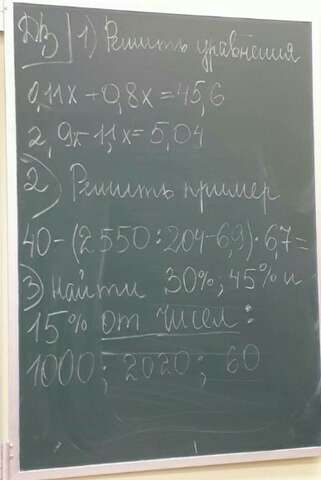 ДЗ 1) Решить уравнения
0,11x + 0,8x = 45,6
2,9x - 1,1x = 5,04
2) Решить пример
40 - (2550 : 204 - 6,9) · 6,7 =
3) Найти 30%; 45% и
15% от чисел:
1000; 2020; 60